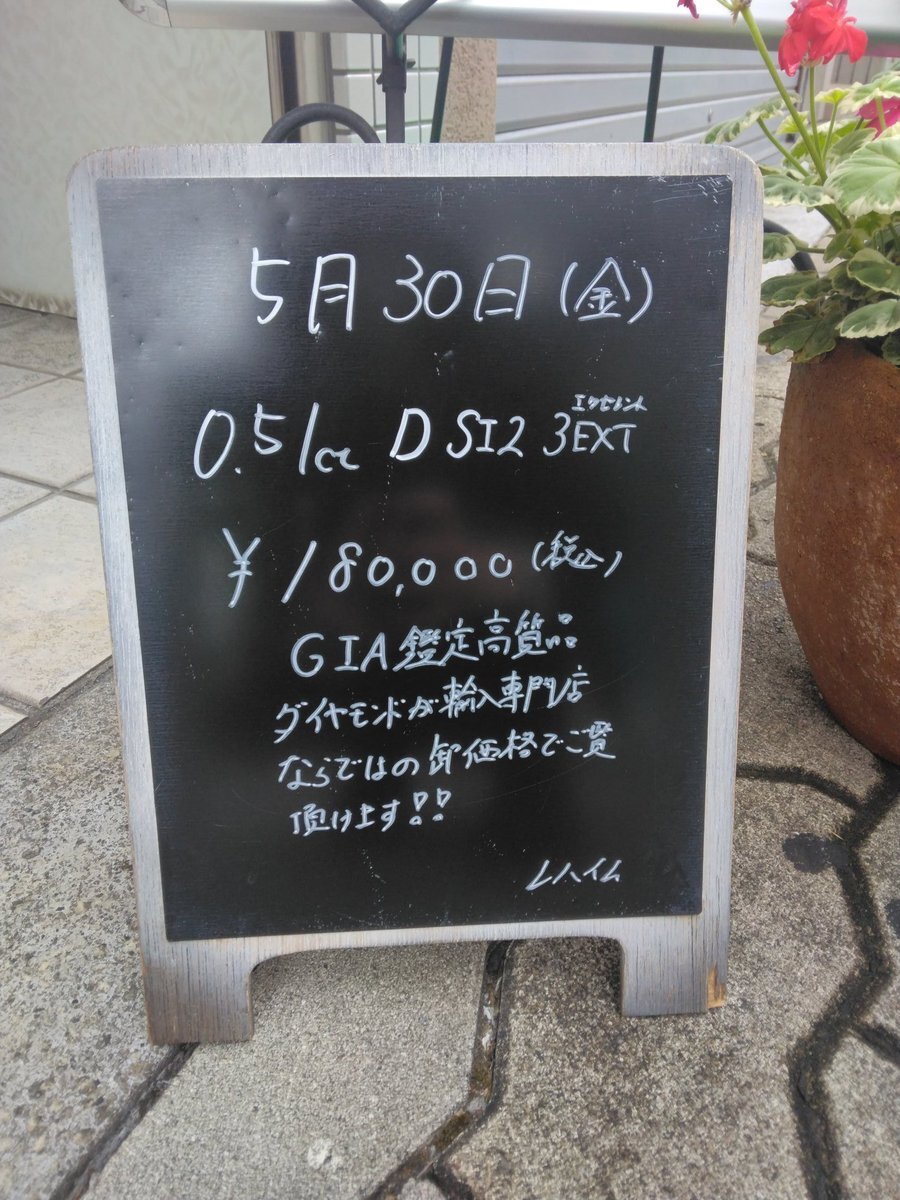 5月30日(金)
エクセレント
0.51ct D SI2 3EXT
¥180,000(税込)
GIA鑑定高質品
ダイヤモンドが輸入専門店
ならではの卸価格でご覧
頂けます!!
レハイム